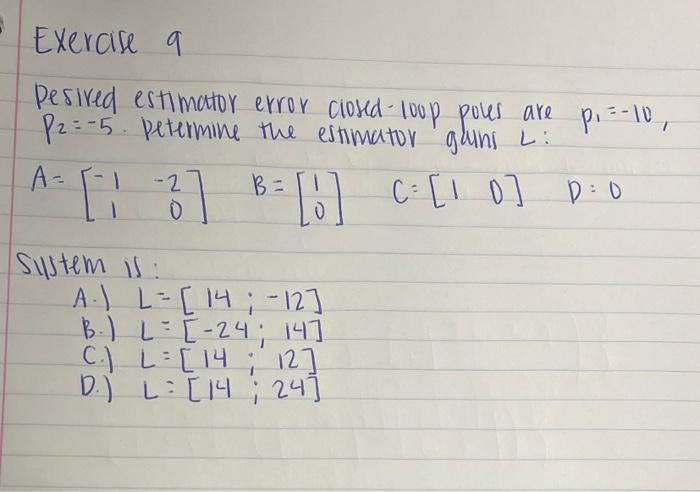 Exercise 9
Desired estimator error closed-loop poles are p₁=-10,
p₂=-5. Determine the estimator gains L:
A= [-1 -2 B= [1 C= [1 0] D: 0
1 0] 0]
System is:
A.) L= [14 ; -12]
B.) L= [-24; 14]
C.) L= [14 ; 12]
D.) L= [14 ; 24]